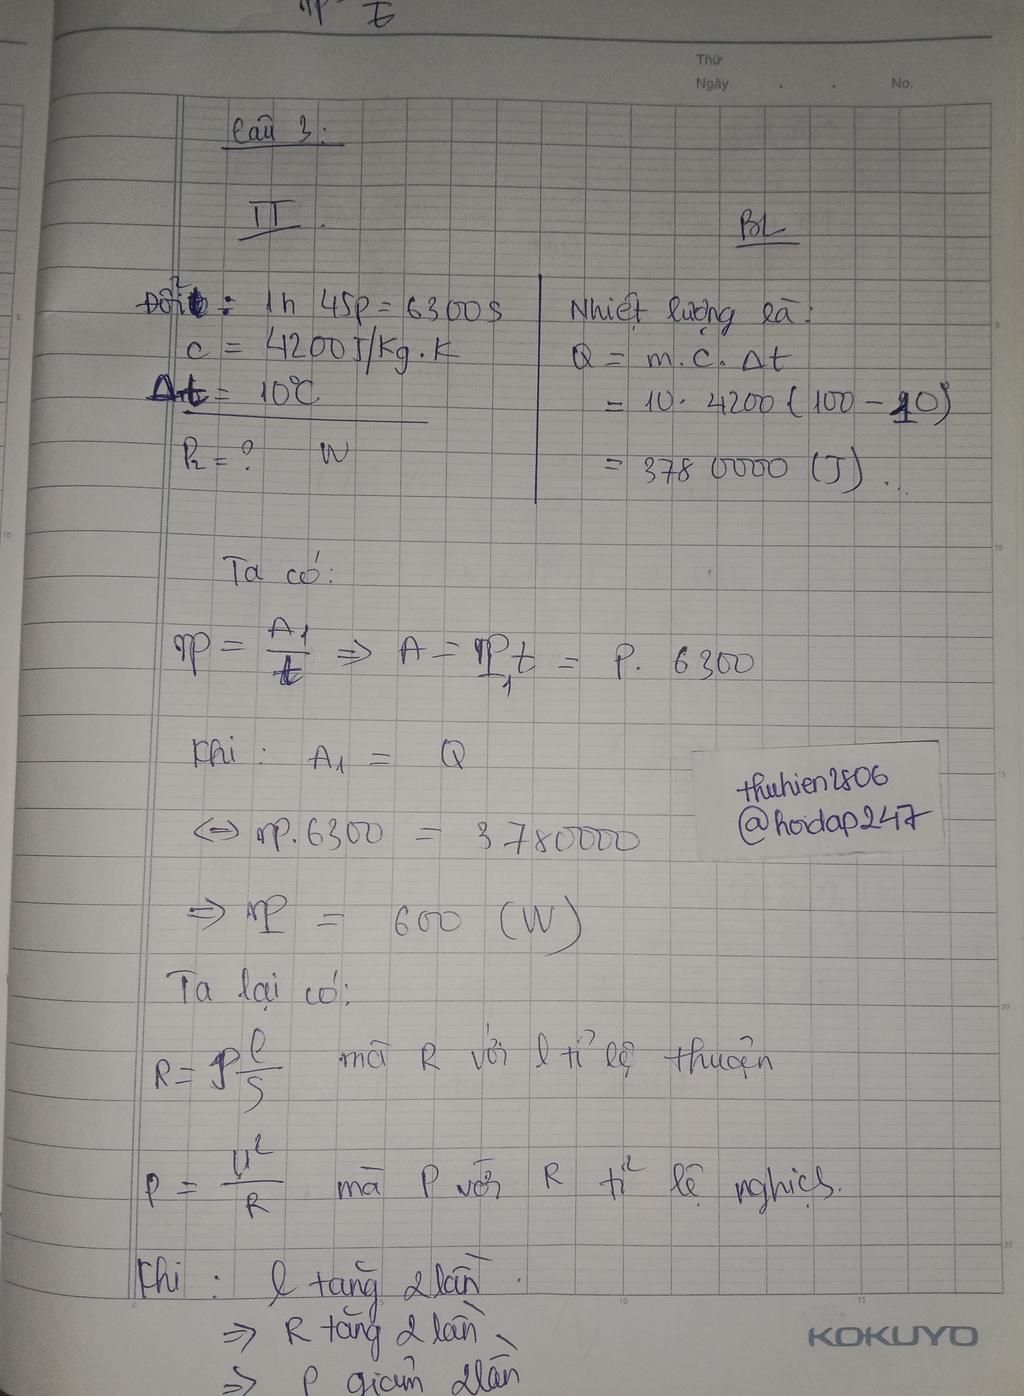 Thứ
Ngày . . No.
Câu 3:
TT.
BL
Đổi: 1h 45p = 6300s
c = 4200J/Kg.K
Δt = 10°C
P₂ = ? W
Nhiệt lượng là:
Q = m.c.Δt
= 10. 4200(100-10)
= 3780000 (J)..
Ta có:
P = A₁/t => A = P₁t = P. 6300
Khi: A₁ = Q
<=> P.6300 = 3780000
=> P = 600 (W)
thuhien2806
@hoidap247
Ta lại có:
R = ρ l/S mà R với l tỉ lệ thuận
P = U²/R mà P với R tỉ lệ nghịch.
Khi: l tăng 2 lần.
=> R tăng 2 lần
=> P giảm 2 lần
KOKUYO